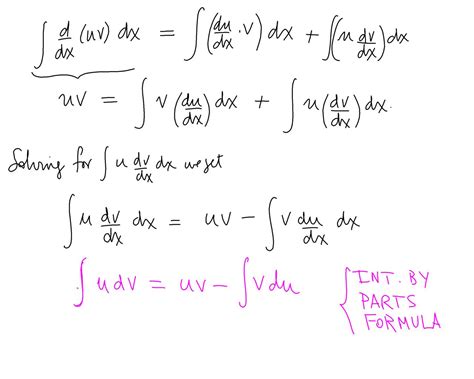 ∫ d/dx (uv) dx = ∫ (du/dx · v) dx + ∫ (u dv/dx) dx
uv = ∫ v (du/dx) dx + ∫ u (dv/dx) dx.
Solving for ∫ u dv/dx dx we get
∫ u dv/dx dx = uv − ∫ v du/dx dx
∫ u dv = uv − ∫ v du
INT. BY
PARTS
FORMULA